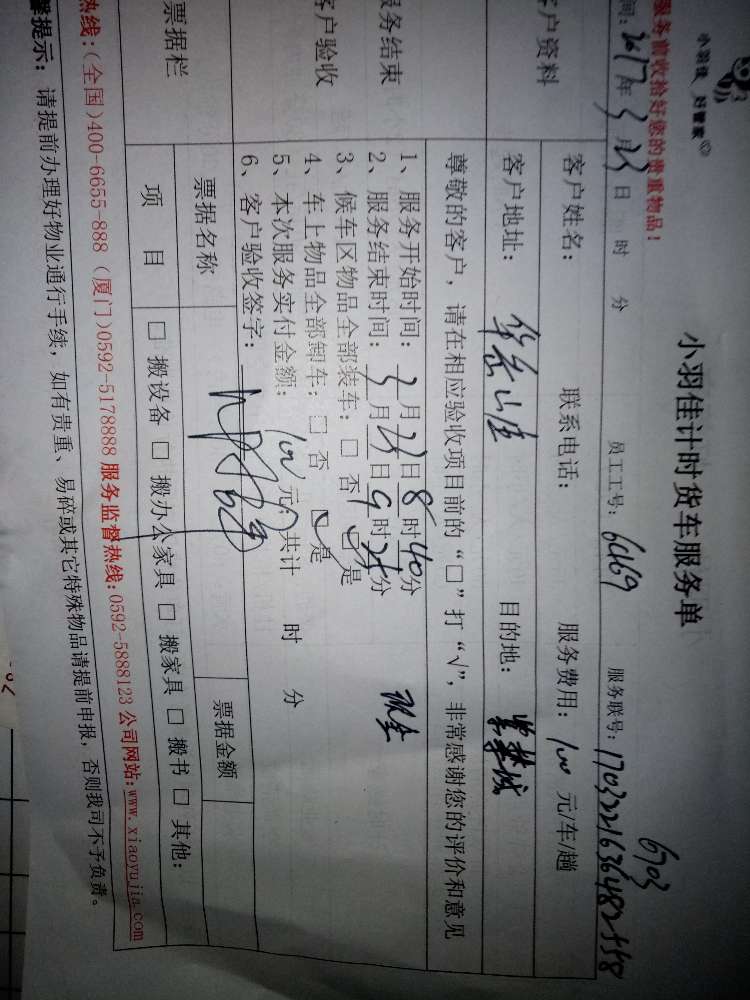 小羽佳 好管家
小羽佳计时货车服务单
服务前收拾好您的贵重物品！
6703
间：2017年3月23日 时 分 员工工号：6469 服务联号：17032216364824558
客户资料
客户姓名： 联系电话： 服务费用：100元/车/趟
客户地址： 华岳山庄 目的地： 紫禁城
尊敬的客户，请在相应验收项目前的“□”打“√”，非常感谢您的评价和意见
服务结束
客户验收
1、服务开始时间：3月23日8时40分
2、服务结束时间：3月23日9时25分 现金
3、候车区物品全部装车：□ 否 ☑ 是
4、车上物品全部卸车：□ 否 ☑ 是
5、本次服务实付金额：100元；共计 时 分
6、客户验收签字：
票据栏
票据名称 票据金额
项 目 □ 搬设备 □ 搬办公家具 □ 搬家具 □ 搬书 □ 其他：
热线：(全国)400-6655-888 (厦门)0592-5178888 服务监督热线：0592-5888123 公司网站：www.xiaoyujia.com
馨提示：请提前办理好物业通行手续，如有贵重、易碎或其它特殊物品请提前申报，否则我司不予负责。